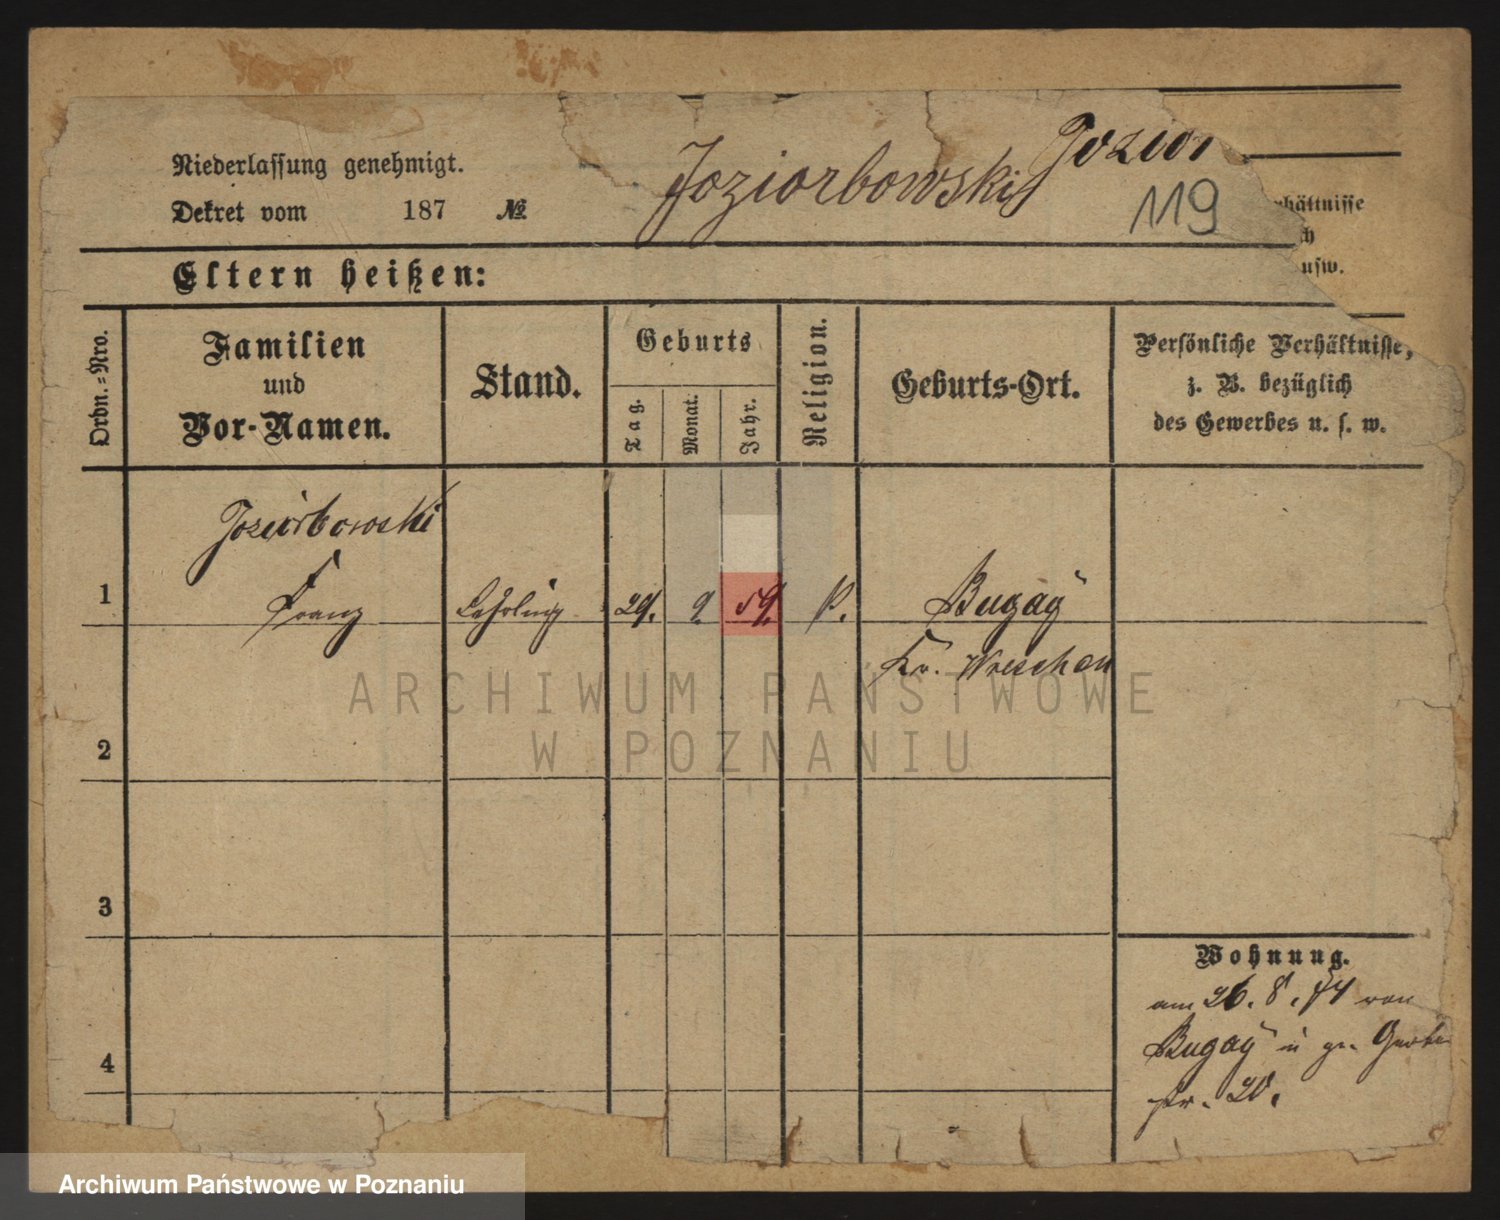 Niederlassung genehmigt.
Dekret vom 187 №
Joziorbowski
Jozior
119
hältnisse
ch
usw.
Eltern heißen:
Ordn.=Nro.
Familien
und
Vor-Namen.
Stand.
Geburts
Tag.
Monat.
Jahr.
Religion.
Geburts-Ort.
Persönliche Verhältnisse,
z. B. bezüglich
des Gewerbes u. s. w.
Joziorbowski
1 Franz Lehrling 29. 9. 59. k. Bugay
Kr. Wreschen
2
3
4
Wohnung.
am 26. 8. 74 von
Bugay n gr. Gerbe
str. 20.
ARCHIWUM PAŃSTWOWE
W POZNANIU
Archiwum Państwowe w Poznaniu